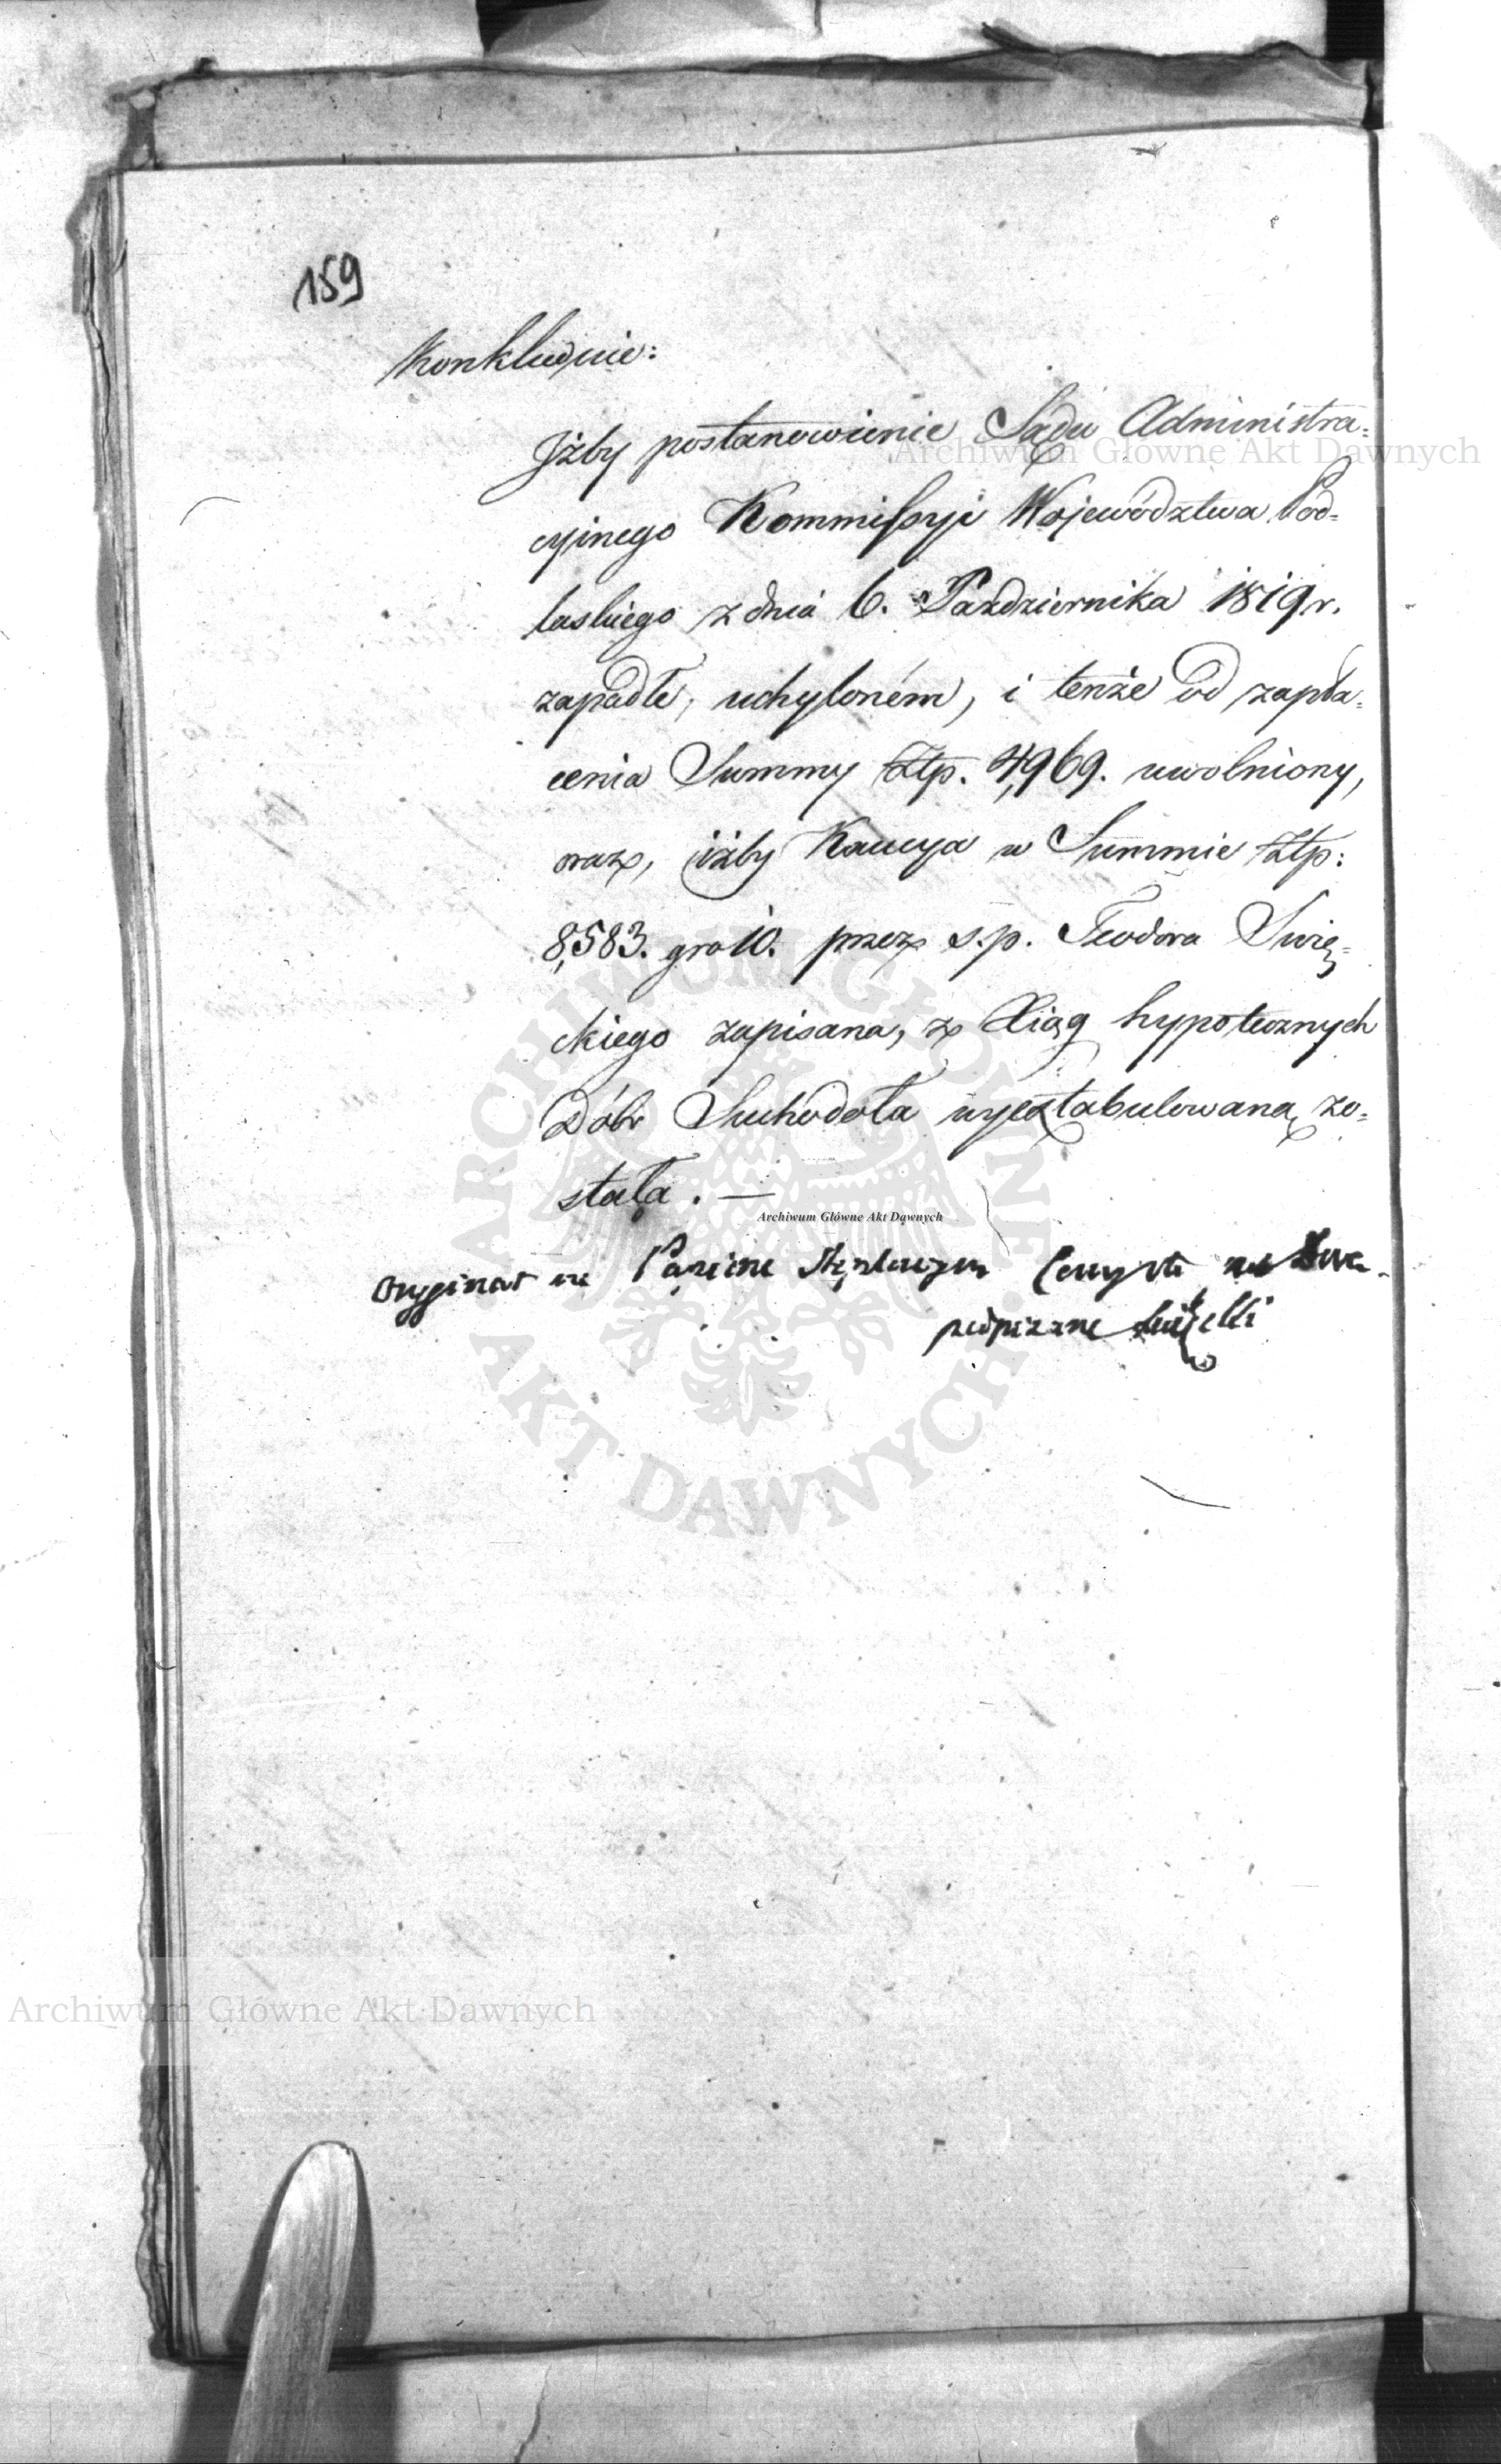 159
Konkluduie:
Jżby postanowienie Sądu Administra=
cyinego Kommissyi Województwa Pod=
laskiego z dnia 6. Pazdziernika 1819 r.
zapadłe, uchyloném, i tenże od zapła=
cenia Summy Złp. 4,969. uwolniony,
oraz, iżby Kaucya w Summie Złp:
8,583. gro 10. przez s.p. Teodora Świę=
ckiego zapisana, z Xiąg hypotecznych
Dóbr Suchodoła wyextabulowaną zo=
stała. —
Archiwum Główne Akt Dawnych
Oryginał na Papierze Stęplowym
podpisane
Archiwum Główne Akt Dawnych
ARCHIWUM GŁÓWNE AKT DAWNYCH
Archiwum Główne Akt Dawnych